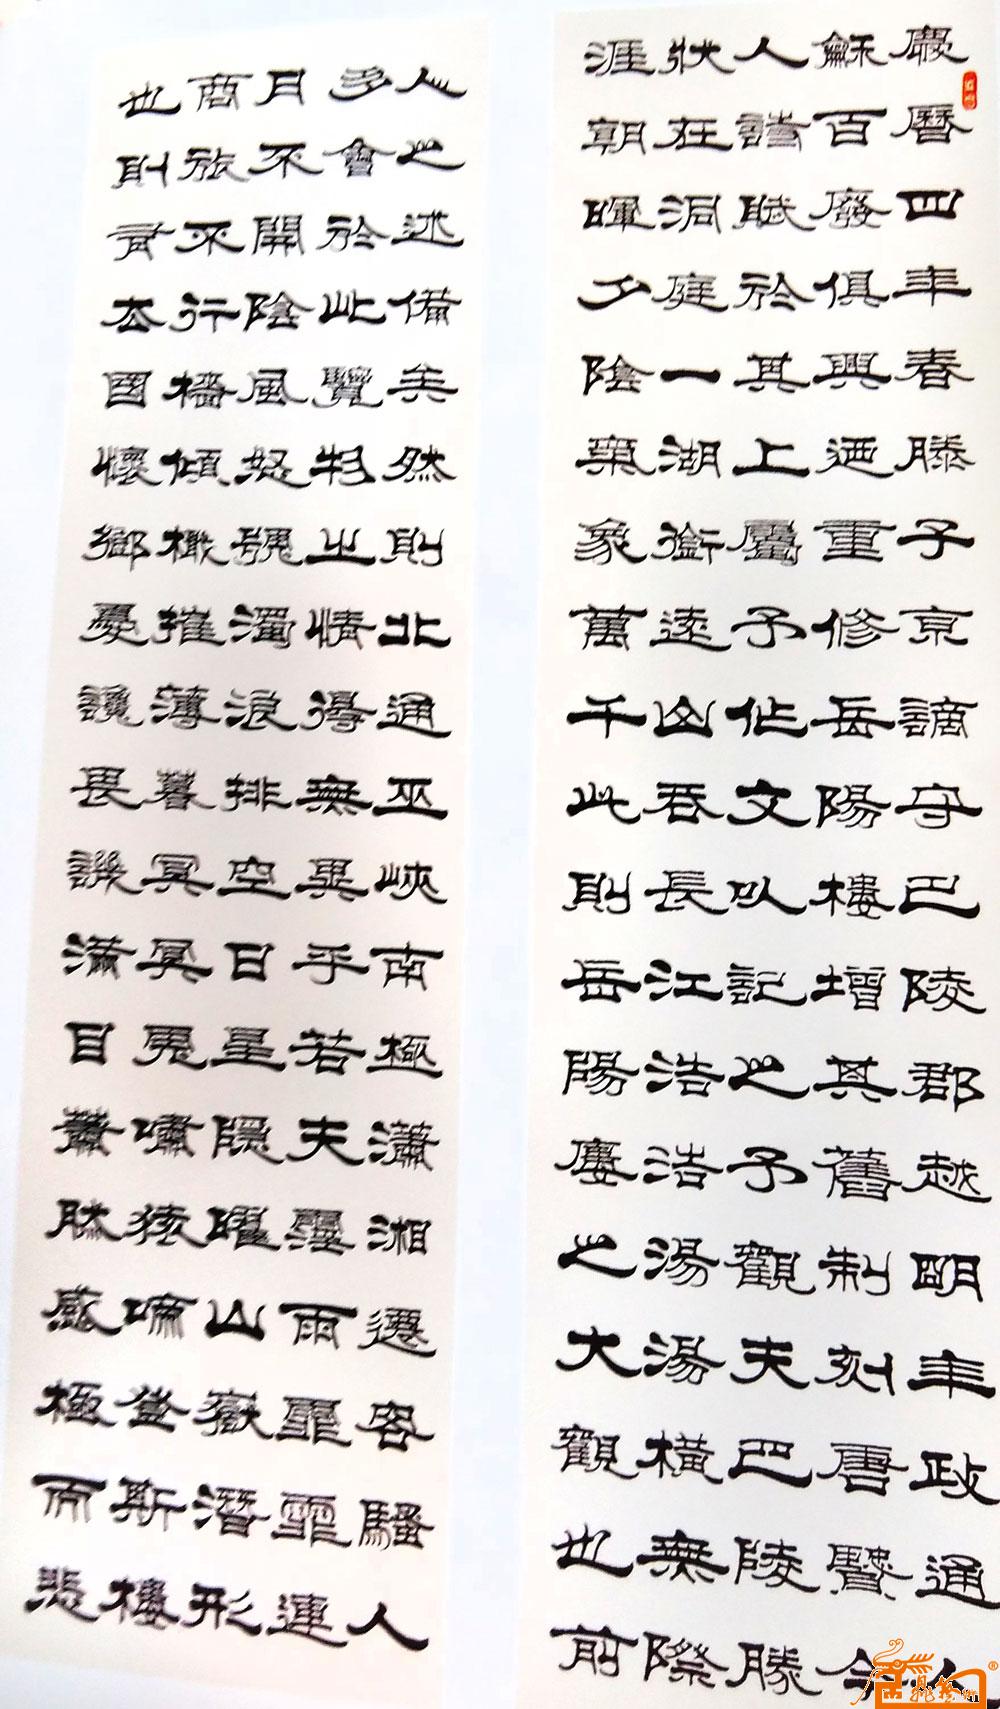 慶曆四年春滕子京謫守巴陵郡越明年政通人
龢百廢俱興迺重修岳陽樓增其舊制刻唐賢今
人詩賦於其上屬予作文以記之予觀夫巴陵勝
狀在洞庭一湖銜遠山吞長江浩浩湯湯橫無際
涯朝暉夕陰氣象萬千此則岳陽廔之大觀也前
人之述備矣然則北通巫峽南極瀟湘遷客騷人
多會於此覽物之情得無異乎若夫霪雨霏霏連
月不開陰風怒號濁浪排空日星隱曜山嶽潛形
商旅不行檣傾檝摧薄暮冥冥虎嘯猿啼登斯樓
也則有去國懷鄉憂讒畏譏滿目蕭然感極而悲